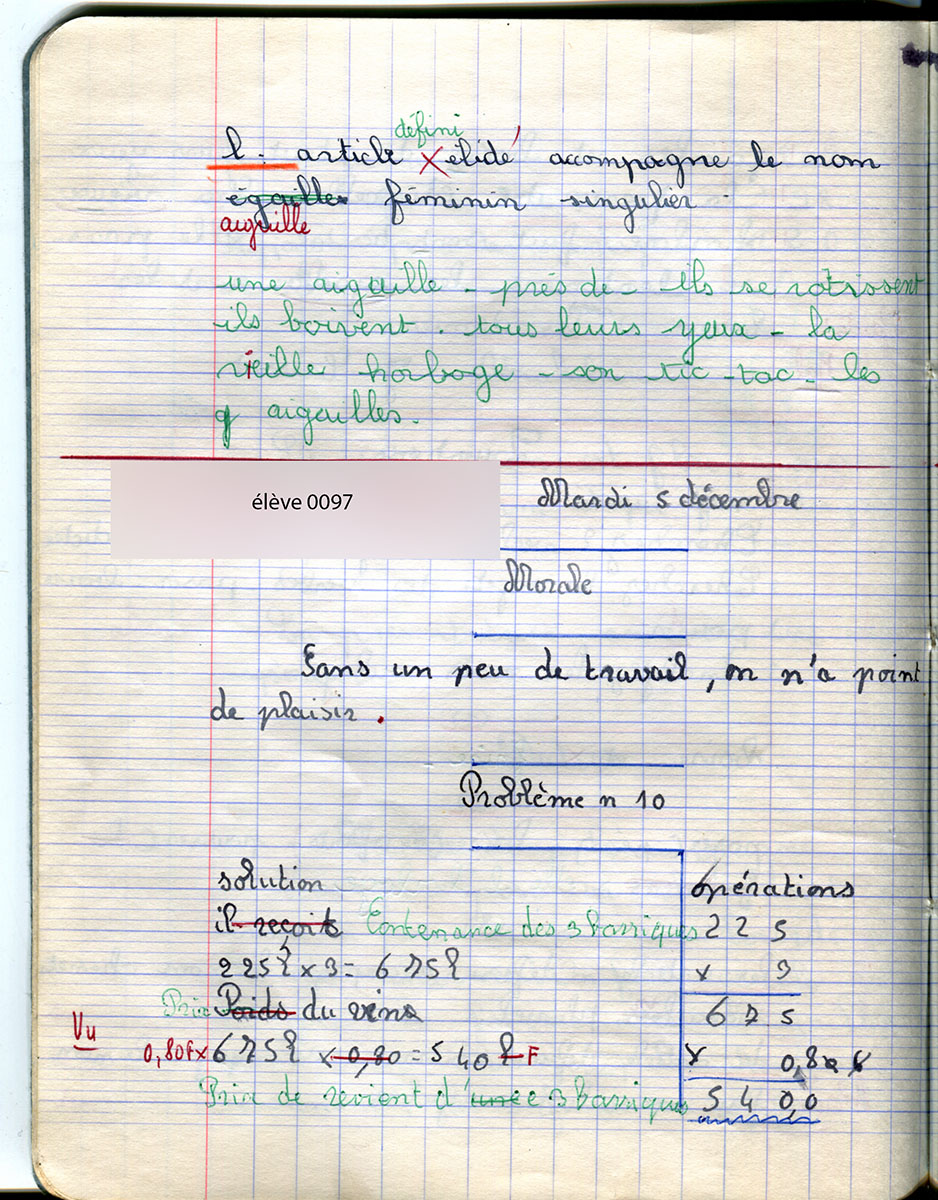 défini
l : article élidé accompagne le nom
égailles féminin singulier
aiguille
une aiguille - près de - ils se rotissent
ils boivent. tous leurs yeux - la
vieille horloge - son tic-tac - les
aigailles.
élève 0097
Mardi 5 décembre
Morale
Sans un peu de travail, on n'a point
de plaisir.
Problème n 10
solution
opérations
il reçoit Contenance des 3 barriques
225
225l x 3 = 675l
x 3
Prix Poids du vins
675
Vu
0,80F x 675l x 0,80 = 540l F
x 0,80
Prix de revient d'unee 3 barriques
540,0